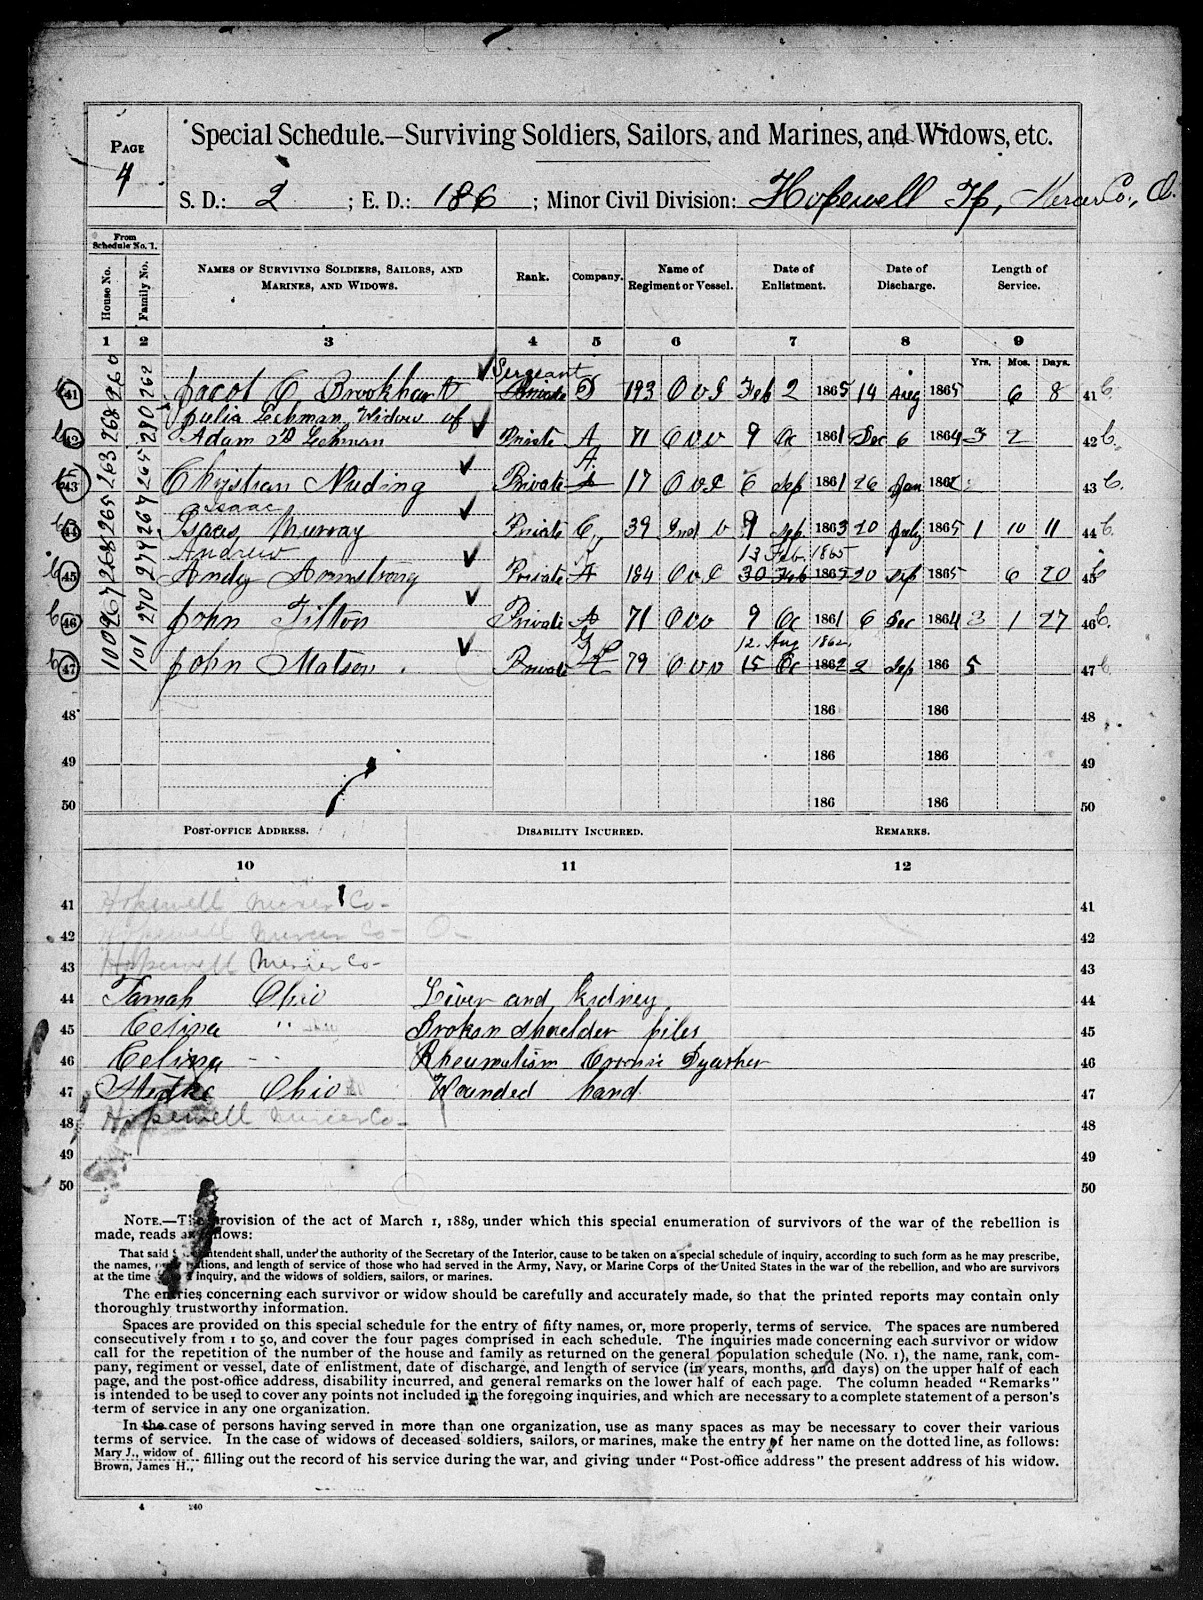 PAGE
4
Special Schedule.—Surviving Soldiers, Sailors, and Marines, and Widows, etc.
S. D.: 2 ; E. D.: 186 ; Minor Civil Division: Hopewell Tp, Mercer Co., O.
From Schedule No. 1.
House No.
Family No.
NAMES OF SURVIVING SOLDIERS, SAILORS, AND MARINES, AND WIDOWS.
Rank.
Company.
Name of Regiment or Vessel.
Date of Enlistment.
Date of Discharge.
Length of Service.
1 2 3 4 5 6 7 8 9
Yrs. Mos. Days.
Sergeant
41 260 262 Jacob C Brookhart Private 193 O V I Feb 2 1865 14 Aug 1865 6 8 41 C
Julia Lehman Widow of
42 268 270 Adam Lehman Private A 71 O V V 9 Oc 1861 Dec 6 1864 3 2 42 C.
A.
43 263 265 Christian Nuding Private 17 O V I 6 Sep 1861 26 Jan 1862 43 C.
Isaac
44 265 267 Isaac Murray Private C 39 Ind V 9 Sep 1863 20 July 1865 1 10 11 44 C
Andrew 13 Feb. 1865
45 268 274 Andy Armstrong Private A 184 O V I 30 Feb 1865 20 Sep 1865 6 20 45 C
46 267 270 John Tilton Private A 71 O V V 9 Oc 1861 6 Dec 1864 3 1 27 46 C.
12. Aug 1862
47 100 101 John Matson Private 79 O V V 15 Oc 1862 2 Sep 186 5 47 C
48 186 186 48
49 186 186 49
50 186 186 50
POST-OFFICE ADDRESS. DISABILITY INCURRED. REMARKS.
10 11 12
41 Hopewell Mercer Co- 41
42 Hopewell Mercer Co- O- 42
43 Hopewell Mercer Co- 43
44 Tamah Ohio Liver and kidney 44
45 Celina " Broken shoulder piles 45
46 Celina Rheumatism 46
47 Ohio Wounded hand 47
48 Hopewell Mercer Co- 48
49 49
50 50
NOTE.—The provision of the act of March 1, 1889, under which this special enumeration of survivors of the war of the rebellion is
made, reads as follows:
That said Superintendent shall, under the authority of the Secretary of the Interior, cause to be taken on a special schedule of inquiry, according to such form as he may prescribe,
the names, organizations, and length of service of those who had served in the Army, Navy, or Marine Corps of the United States in the war of the rebellion, and who are survivors
at the time of said inquiry, and the widows of soldiers, sailors, or marines.
The entries concerning each survivor or widow should be carefully and accurately made, so that the printed reports may contain only
thoroughly trustworthy information.
Spaces are provided on this special schedule for the entry of fifty names, or, more properly, terms of service. The spaces are numbered
consecutively from 1 to 50, and cover the four pages comprised in each schedule. The inquiries made concerning each survivor or widow
call for the repetition of the number of the house and family as returned on the general population schedule (No. 1), the name, rank, com-
pany, regiment or vessel, date of enlistment, date of discharge, and length of service (in years, months, and days) on the upper half of each
page, and the post-office address, disability incurred, and general remarks on the lower half of each page. The column headed "Remarks"
is intended to be used to cover any points not included in the foregoing inquiries, and which are necessary to a complete statement of a person's
term of service in any one organization.
In the case of persons having served in more than one organization, use as many spaces as may be necessary to cover their various
terms of service. In the case of widows of deceased soldiers, sailors, or marines, make the entry of her name on the dotted line, as follows:
Mary J., widow of
Brown, James H., filling out the record of his service during the war, and giving under "Post-office address" the present address of his widow.
4 240